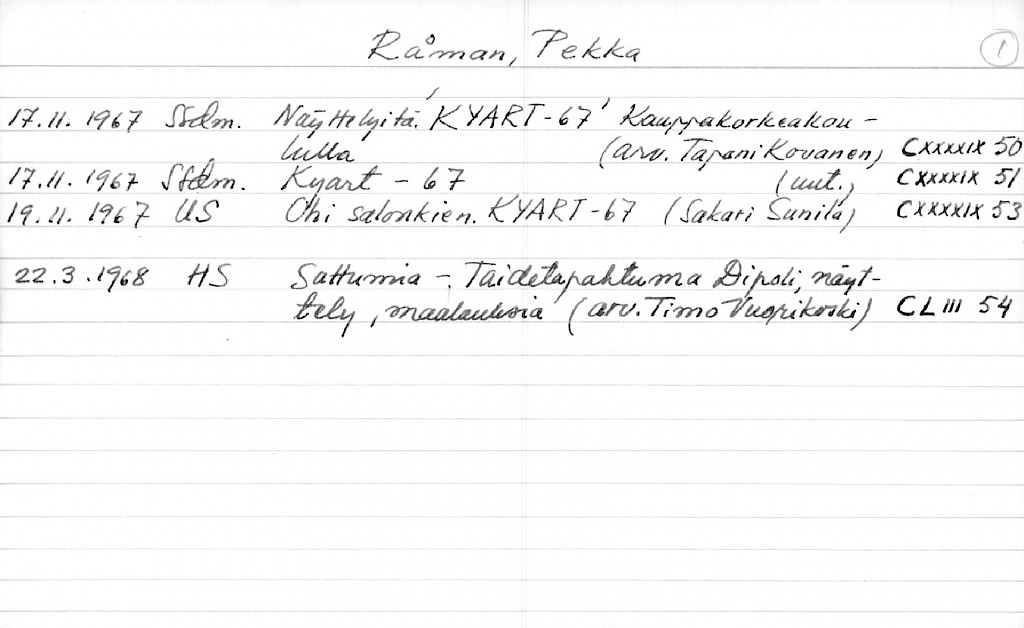 Råman, Pekka 1
17.11. 1967 Stdm. Näyttelyitä. 'KYART-67' Kauppakorkeakou-
lulla (arv. Tapani Kovanen) CXXXXIX 50
17.11. 1967 Stdm. Kyart - 67 (uut.) CXXXXIX 51
19.11. 1967 US Ohi salonkien. KYART-67 (Sakari Sunila) CXXXXIX 53
22.3.1968 HS Sattumia - Taidetapahtuma Dipoli, näyt-
tely, maalauksia (arv. Timo Vuorikoski) CLIII 54